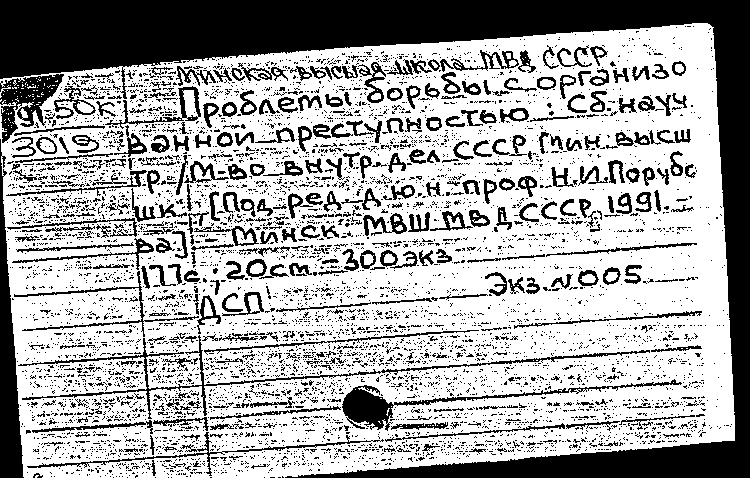 Минская высшая школа МВД СССР.
Проблемы борьбы с организо
ванной преступностью : Сб. науч
тр. / М-во внутр. дел СССР, Мин. высш
шк. ; [Под ред. д.ю.н. проф. Н.И. Порубо
ва]. - Минск : МВШ МВД СССР, 1991. -
177с. ; 20см. - 300экз
ДСП! Экз. №005
50к
3019